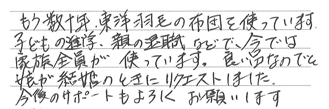 もう数十年、東洋羽毛の布団を使っています。
子どもの進学、親の退職などで、今では
家族全員が使っています。良い品なのでと
娘が結婚のときにリクエストしました。
今後のサポートもよろしくお願いします